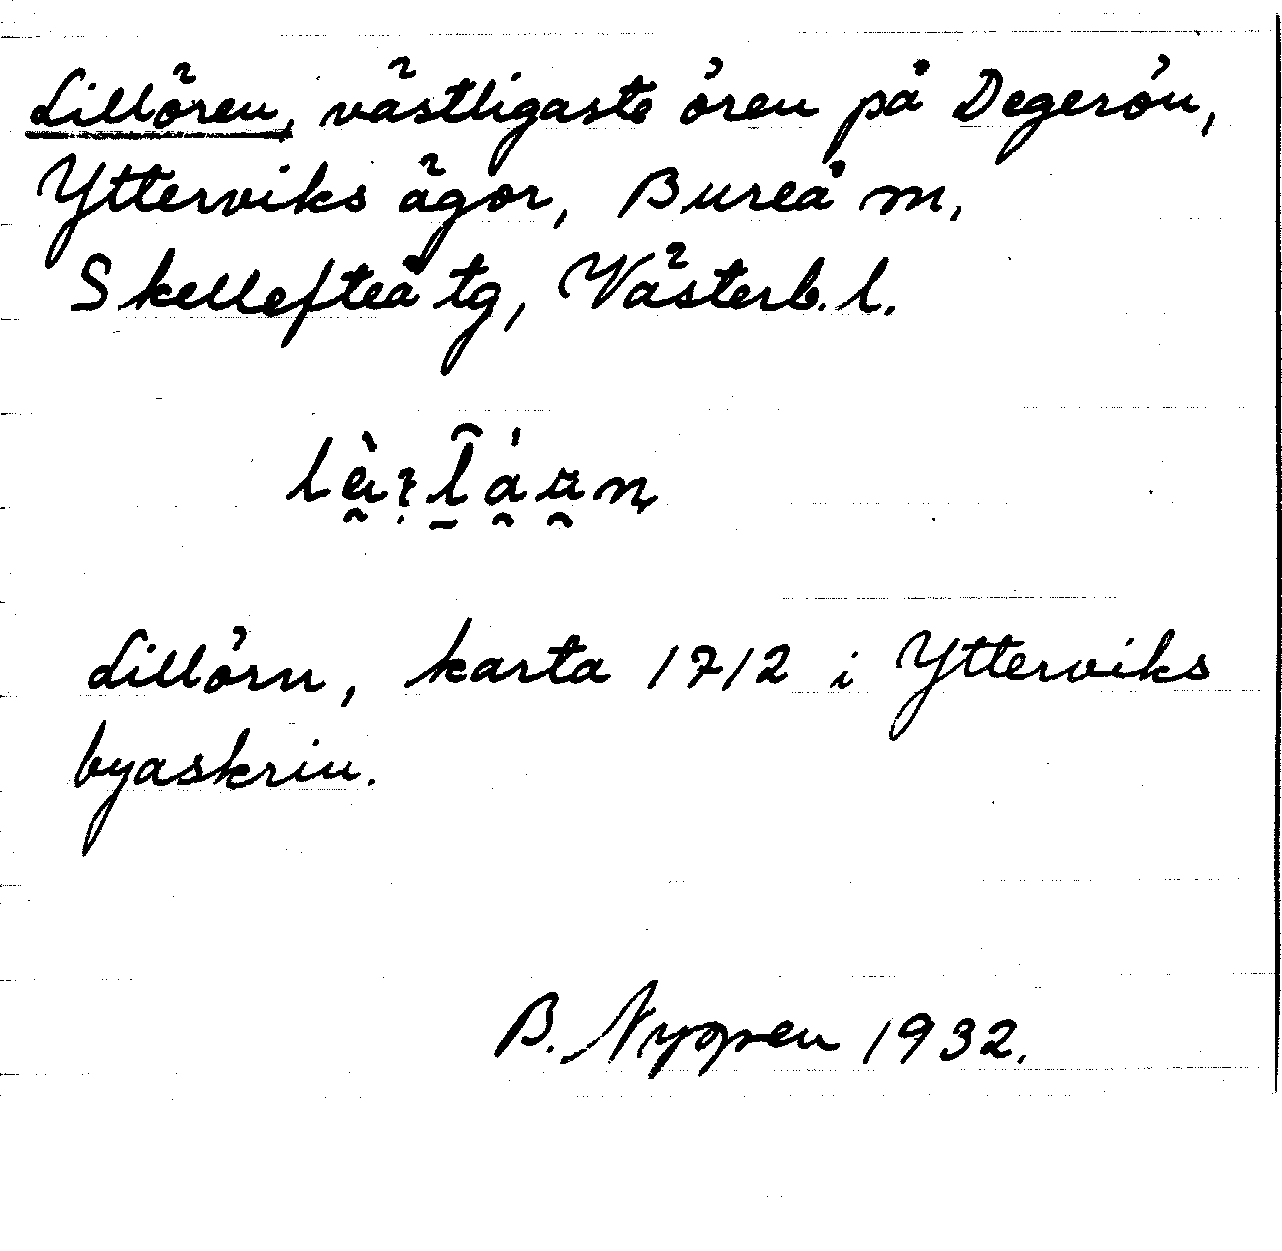 Lillören, västligaste ören på Degerön,
Ytterviks ägor, Bureå m,
Skellefteå tg, Västerb. l.
Lillörn, karta 1712 i Ytterviks
byaskrin.
B. Nygren 1932.